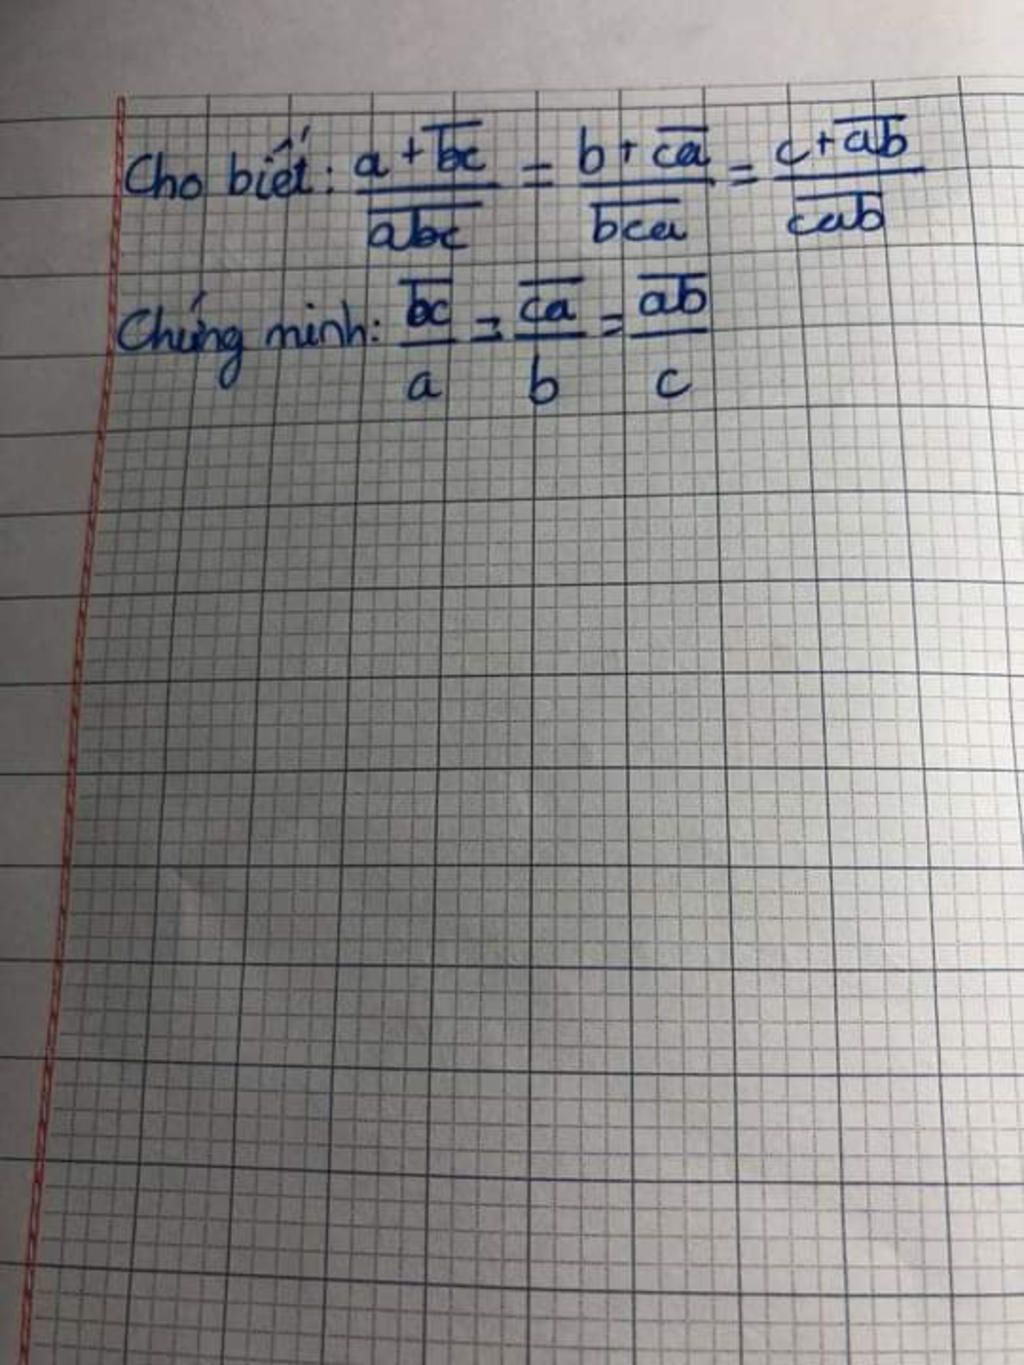 Cho biết: \frac{a+\overline{bc}}{\overline{abc}} = \frac{b+\overline{ca}}{\overline{bca}} = \frac{c+\overline{ab}}{\overline{cab}}
Chứng minh: \frac{\overline{bc}}{a} = \frac{\overline{ca}}{b} = \frac{\overline{ab}}{c}